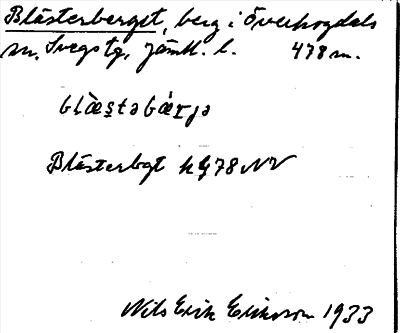 Blästerberget, berg i Överhogdals
sn, Svegs tg, Jämtl. l. 478 m.
Blästerbgt k 478 NV
Nils Erik Eriksson 1933